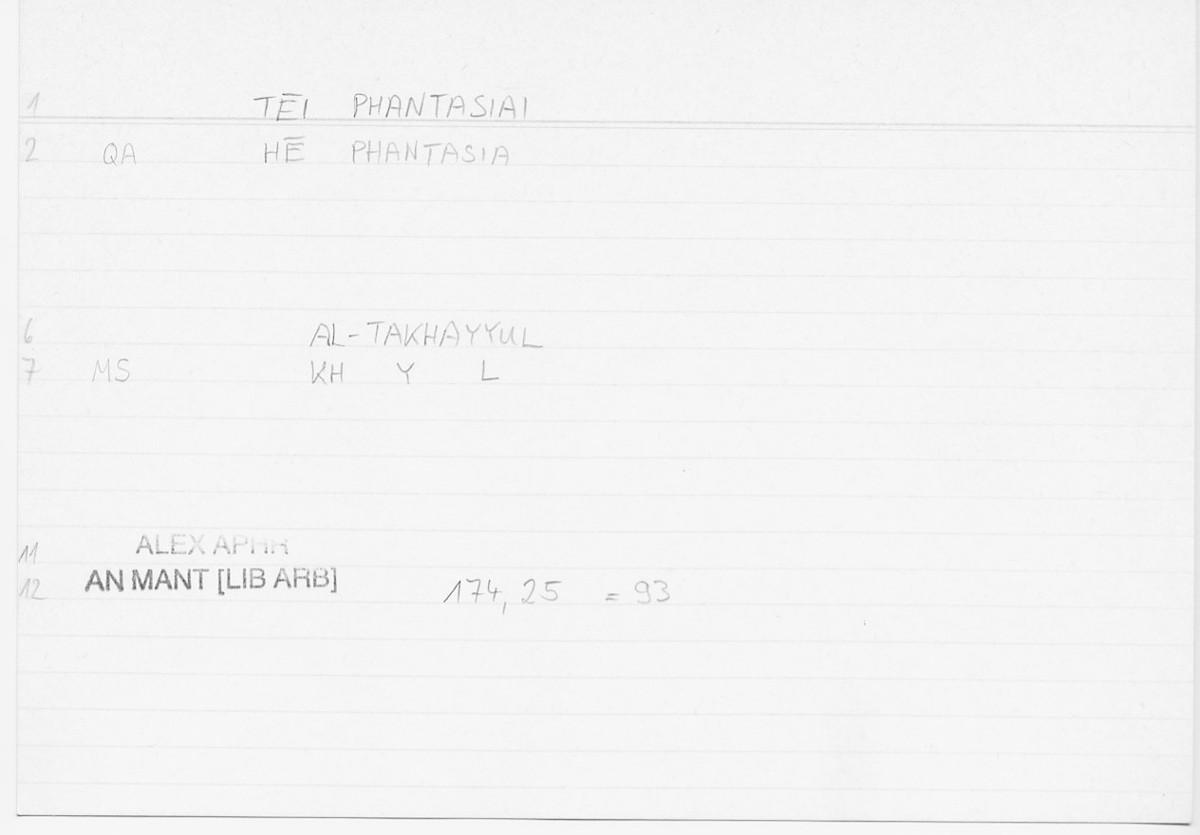 1 TĒI PHANTASIAI
2 QA HĒ PHANTASIA
6 AL-TAKHAYYUL
7 MS KH Y L
11 ALEX APHR
12 AN MANT [LIB ARB] 174,25 = 93